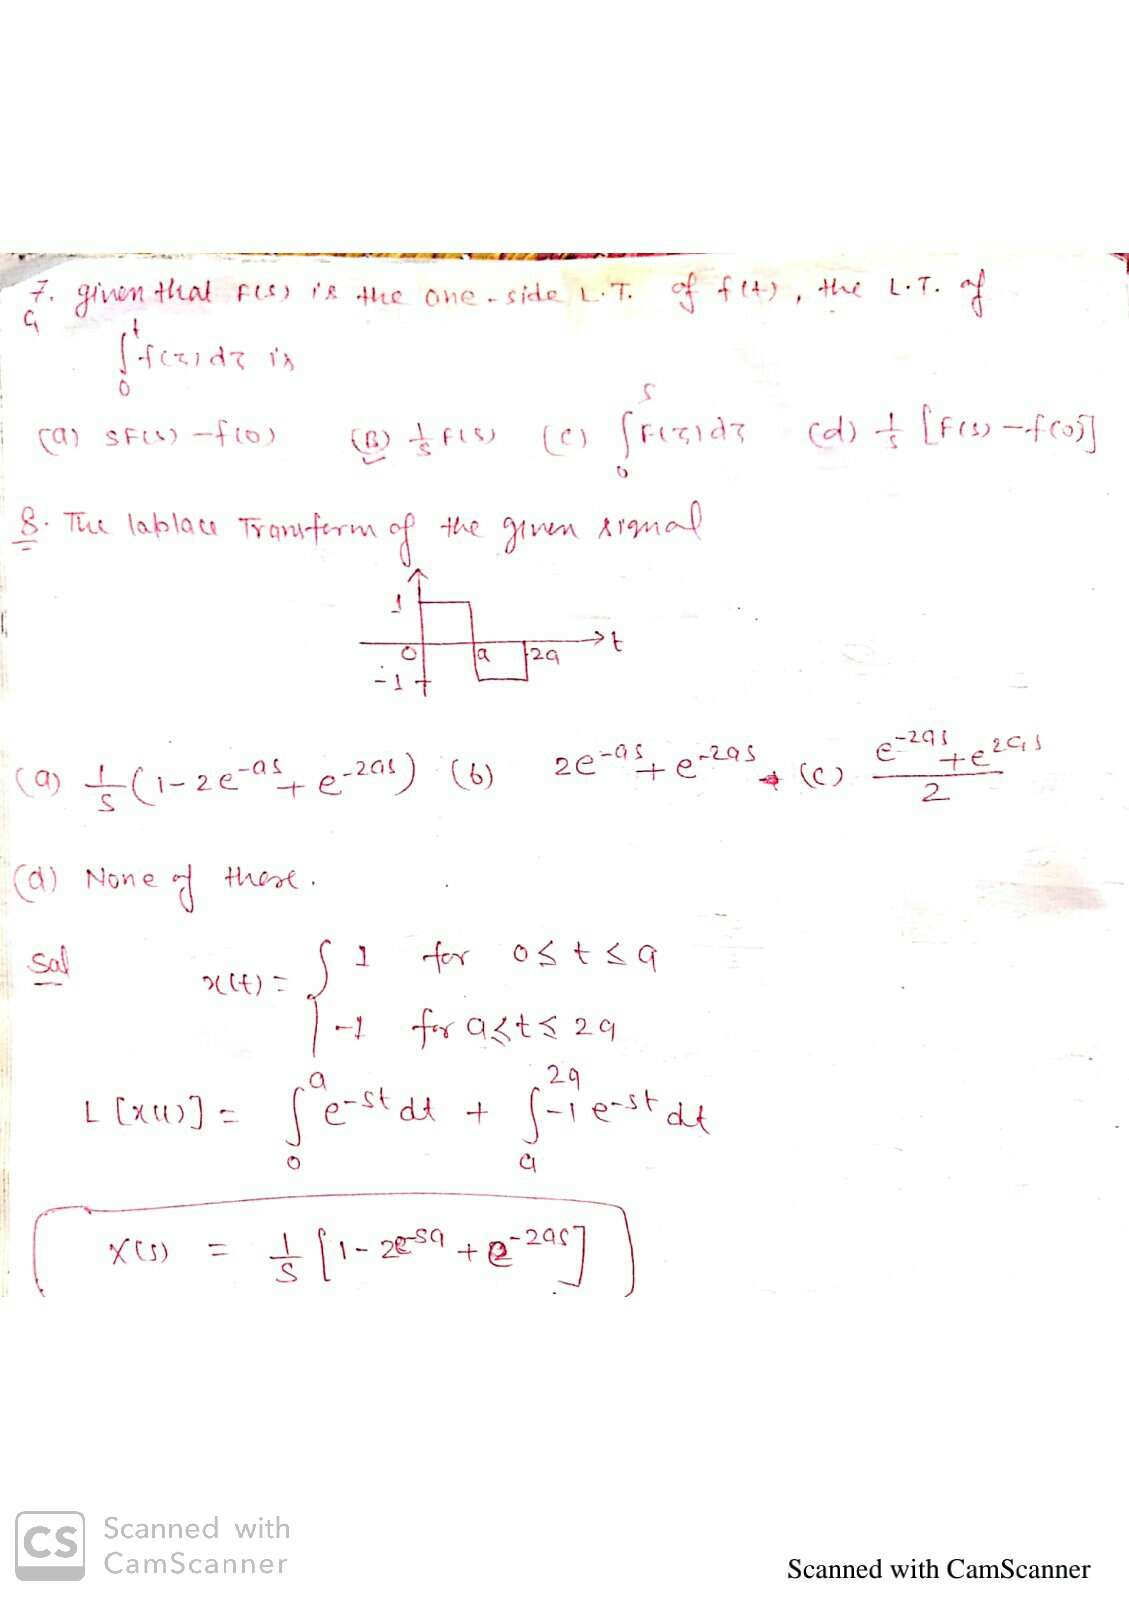 7. given that F(s) is the one-side L.T. of f(t), the L.T. of
G
∫₀ᵗ f(τ)dτ is
(a) SF(s) - f(0) (B) 1/s F(s) (c) ∫₀ˢ F(τ)dτ (d) 1/s [F(s) - f(0)]
8. The laplace Transform of the given signal
1
0 a 2a t
-1
(a) 1/s (1 - 2e^-as + e^-2as) (b) 2e^-as + e^-2as (c) (e^-2as + e^2as)/2
(d) None of these.
Sol
x(t) = { 1 for 0 ≤ t ≤ a
-1 for a ≤ t ≤ 2a
L[x(t)] = ∫₀ᵃ e^-st dt + ∫ₐ²ᵃ -1 e^-st dt
X(s) = 1/s [1 - 2e^-sa + e^-2as]
CS Scanned with
CamScanner
Scanned with CamScanner